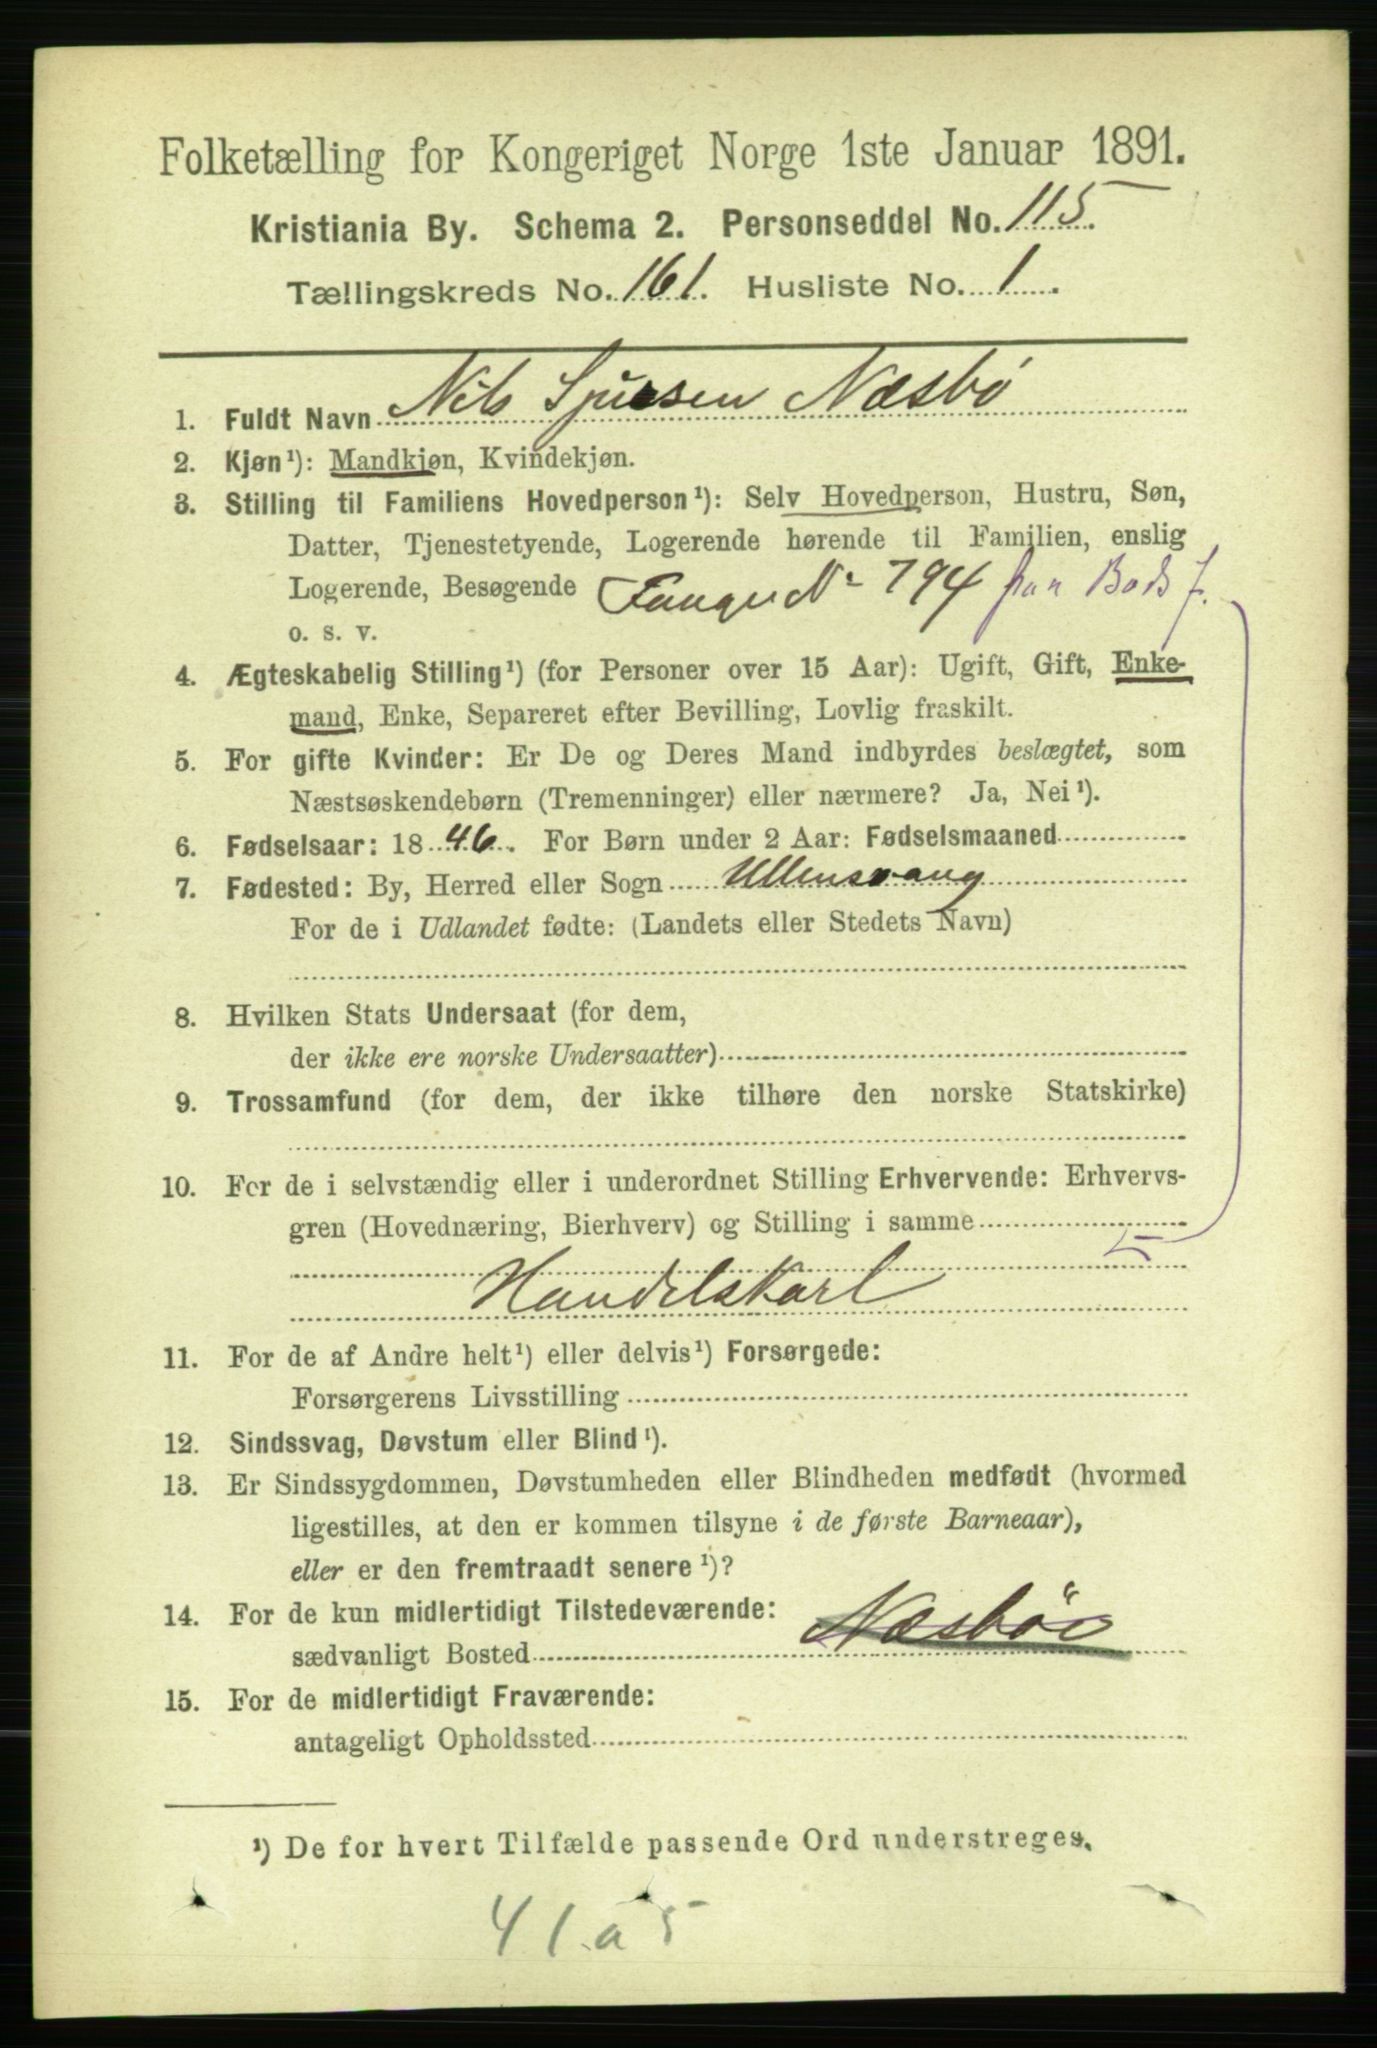 Folketælling for Kongeriget Norge 1ste Januar 1891.
Kristiania By. Schema 2. Personseddel No. 115.
Tællingskreds No. 161. Husliste No. 1.
1. Fuldt Navn Nils Sjursen Næsbö
2. Kjøn¹): Mandkjøn, Kvindekjøn.
3. Stilling til Familiens Hovedperson¹): Selv Hovedperson, Hustru, Søn,
Datter, Tjenestetyende, Logerende hørende til Familien, enslig
Logerende, Besøgende Fange No 794 paa Bods f.
o. s. v.
4. Ægteskabelig Stilling¹) (for Personer over 15 Aar): Ugift, Gift, Enke-
mand, Enke, Separeret efter Bevilling, Lovlig fraskilt.
5. For gifte Kvinder: Er De og Deres Mand indbyrdes beslægtet, som
Næstsøskendebørn (Tremenninger) eller nærmere? Ja, Nei¹).
6. Fødselsaar: 1846. For Børn under 2 Aar: Fødselsmaaned
7. Fødested: By, Herred eller Sogn Ullensvang
For de i Udlandet fødte: (Landets eller Stedets Navn)
8. Hvilken Stats Undersaat (for dem,
der ikke ere norske Undersaatter)
9. Trossamfund (for dem, der ikke tilhøre den norske Statskirke)
10. For de i selvstændig eller i underordnet Stilling Erhvervende: Erhvervs-
gren (Hovednæring, Bierhverv) og Stilling i samme
Handelskarl
11. For de af Andre helt¹) eller delvis¹) Forsørgede:
Forsørgerens Livsstilling
12. Sindssvag, Døvstum eller Blind¹).
13. Er Sindssygdommen, Døvstumheden eller Blindheden medfødt (hvormed
ligestilles, at den er kommen tilsyne i de første Barneaar),
eller er den fremtraadt senere¹)?
14. For de kun midlertidigt Tilstedeværende:
sædvanligt Bosted Næsbö
15. For de midlertidigt Fraværende:
antageligt Opholdssted
¹) De for hvert Tilfælde passende Ord understreges.
41 a 5